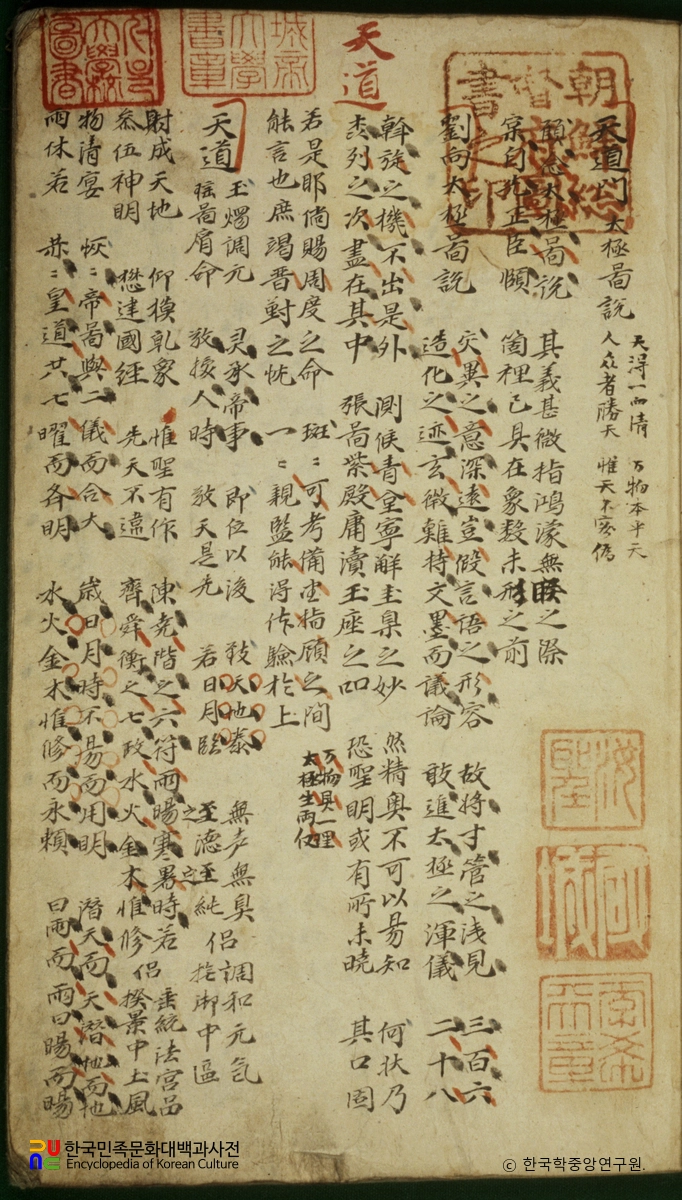 天道
朝鮮總督府圖書之印
天道門 太極啚說 天淂一而清 万物本乎天
人众者勝天 惟天不容偽
太極啚說 其義甚微指鴻濛無朕之際
正臣頋 箇裡已具在象数未形之前
劉向太極啚說 灾異之意深遠豈假言語之形容 故将寸管之浅見 三百六
造化之迹玄微難持文墨而議論 敢進太極之渾儀 二十八
斡旋之機不出是外 測候青坮寧解圭臬之妙 然精奥不可以昜知 何状乃
列之次盡在其中 張啚紫殿庸瀆玉座之叩 恐聖明或有所未曉 其口圄
若是耶倘賜周度之命 斑〻可考備坮指顧之间 万物具一理
能言也庶竭晋對之忱 一〻親監能淂作驗於上 太極生両仪
天道 玉燭調元 灵承帝事 即位以後 天地泰 無声無臭 侶調和元氣
瑶啚肩命 敬授人時 敬天是先 若日月臨 之至德之至純 指御中區
財成天地 仰模乹象 惟聖有作 陳尭階之六符雨暘寒暑時若 垂統法宮品
叅伍神明 懋建國經 先天不違 齊舜衡之七政水火金木惟修 侶 揆景中土風
物清宴 恢〻帝啚與二儀而合大 歳日月時不昜而用明 潜天而天潜地而地
雨休若 赤〻皇道共七曜而各明 水火金木惟修而永頼 曰雨而雨曰暘而暘
한국민족문화대백과사전
Encyclopedia of Korean Culture
ⓒ 한국학중앙연구원.